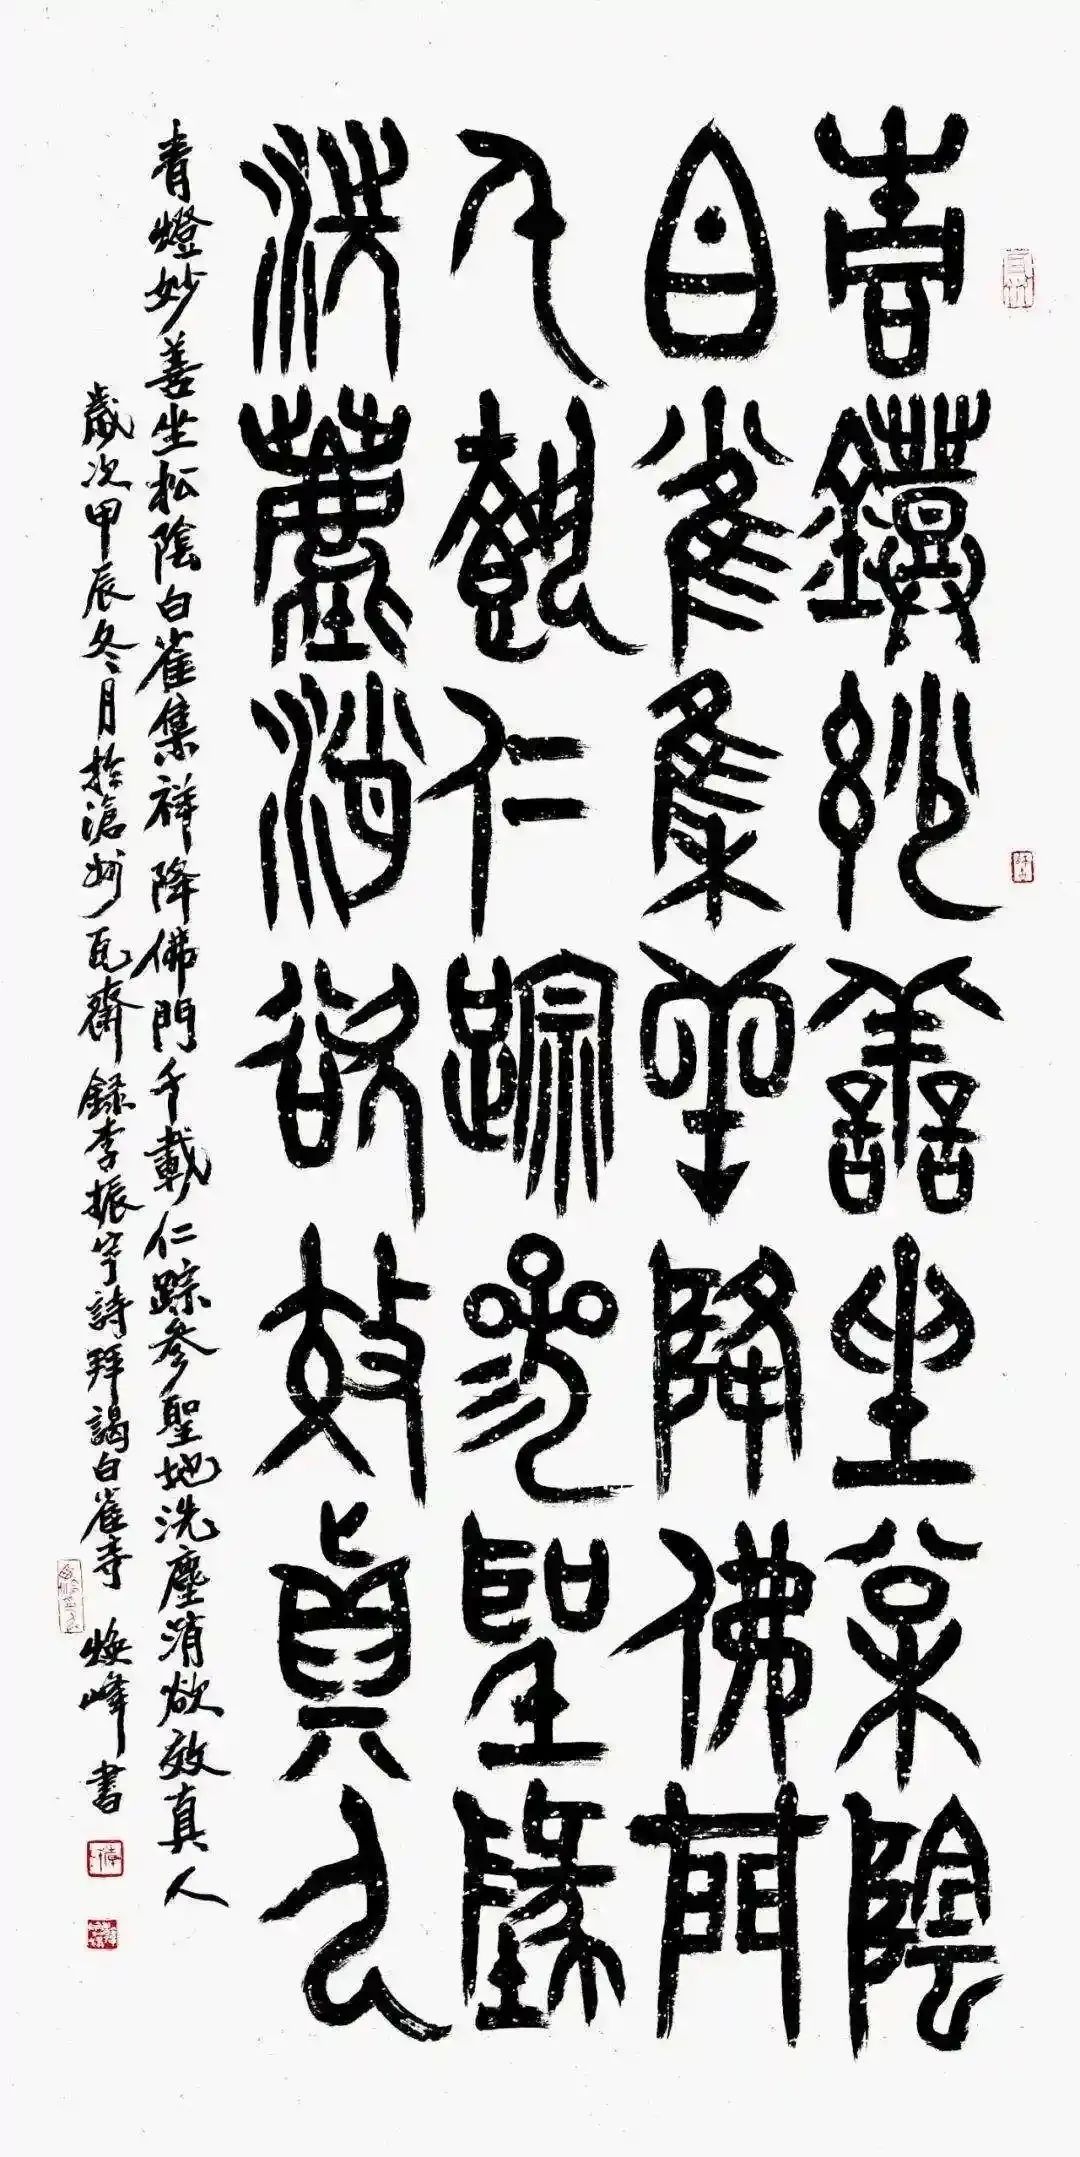 青鐙妙善坐松陰
白雀集羊降佛門
千載仁踪參聖地
洗塵消欲效真人
青燈妙善坐松陰白雀集祥降佛門千載仁踪參聖地洗塵消欲效真人
歲次甲辰冬月於滄州瓦齋錄李振寧詩拜謁白雀寺 煥峰書